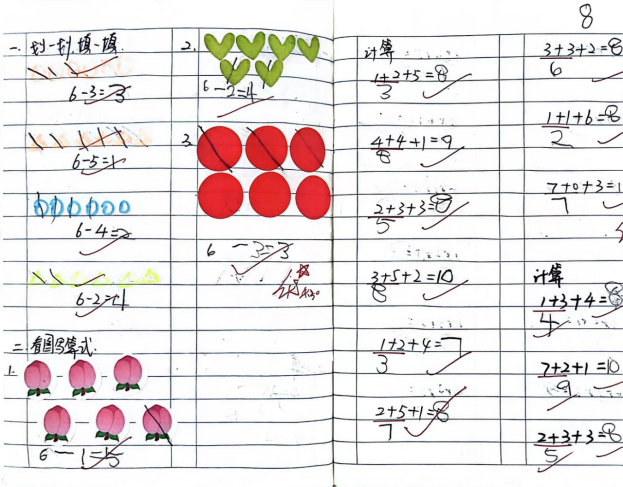 一、划一划,填一填.
6-3=3
6-5=1
6-4=2
6-2=4
二.看图写算式.
1.
6-1=5
2.
6-2=4
3.
6-3=3
计算
1+2+5=8
3
4+4+1=9
8
2+3+3=8
5
3+5+2=10
8
1+2+4=7
3
2+5+1=8
7
8
3+3+2=8
6
1+1+6=8
2
7+0+3=1
7
计算
1+3+4=8
4
7+2+1=10
9
2+3+3=8
5